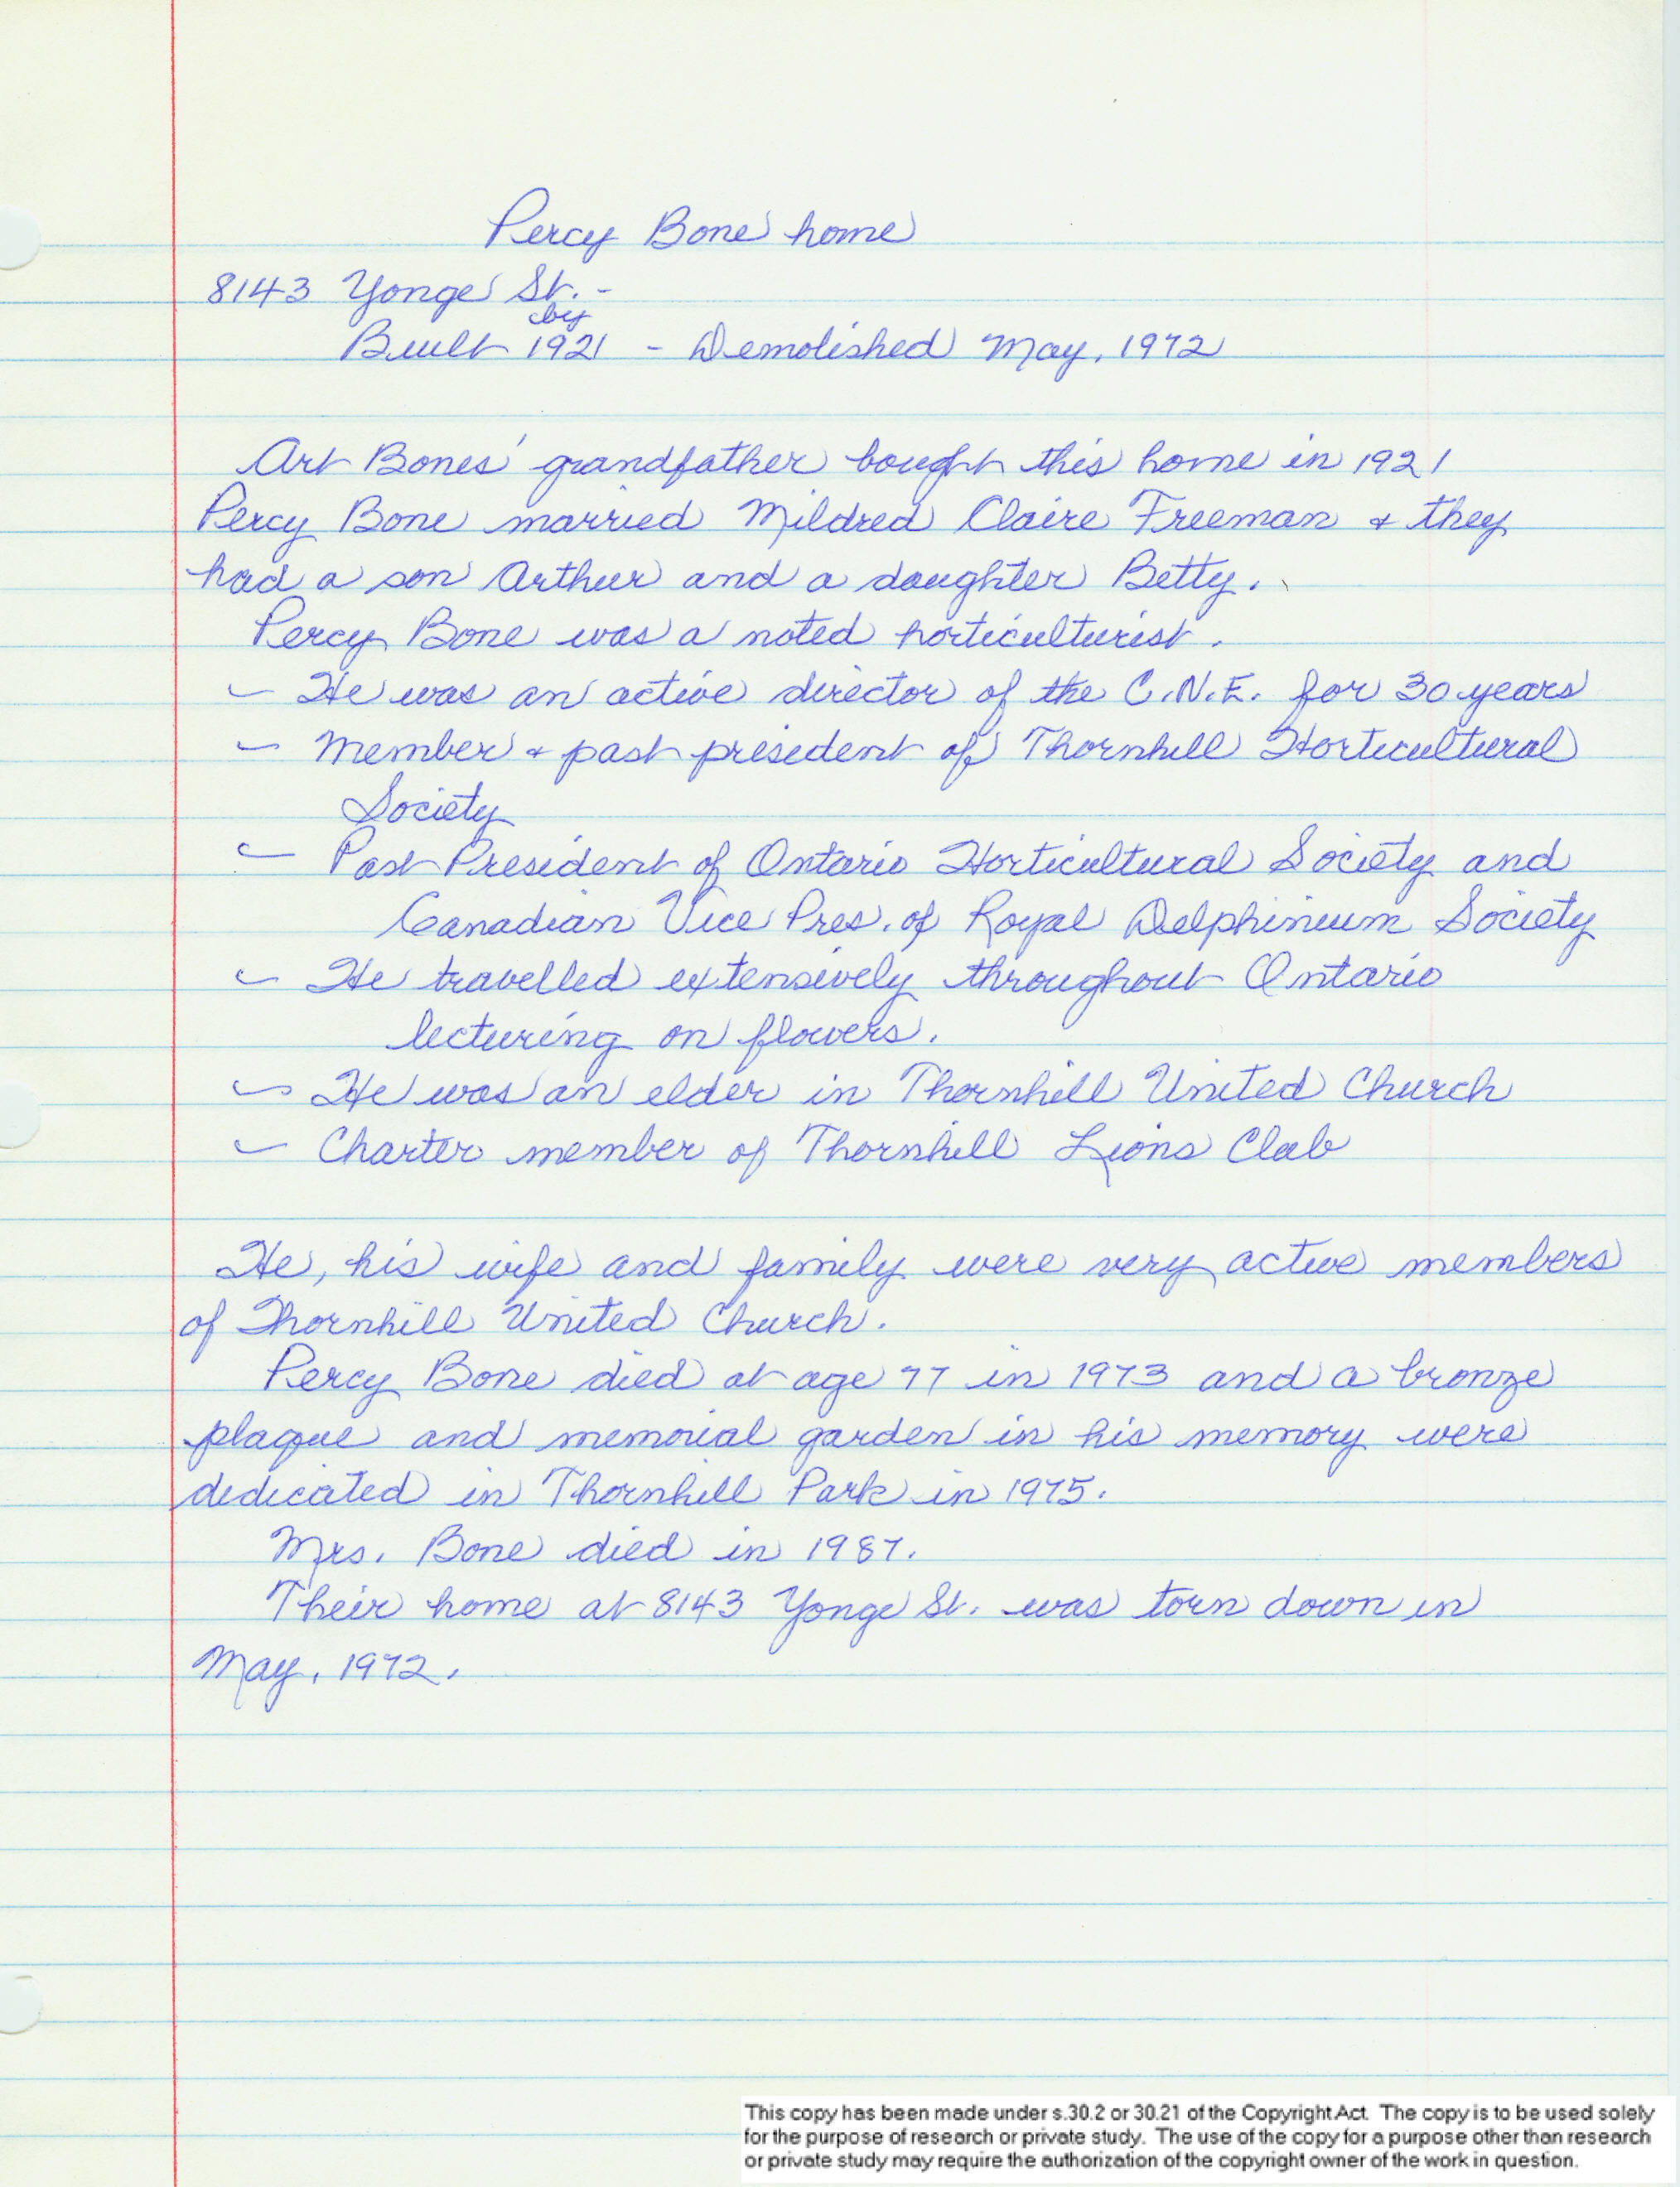 Percy Bone home
8143 Yonge St. -
by
Built 1921 - Demolished May, 1972
Art Bones' grandfather bought this home in 1921
Percy Bone married Mildred Claire Freeman + they
had a son Arthur and a daughter Betty.
Percy Bone was a noted horticulturist.
- He was an active director of the C.N.E. for 30 years
- Member + past president of Thornhill Horticultural
Society
- Past President of Ontario Horticultural Society and
Canadian Vice Pres. of Royal Delphinium Society
- He travelled extensively throughout Ontario
lecturing on flowers.
- He was an elder in Thornhill United Church
- Charter member of Thornhill Lions Club
He, his wife and family were very active members
of Thornhill United Church.
Percy Bone died at age 77 in 1973 and a bronze
plaque and memorial garden in his memory were
dedicated in Thornhill Park in 1975.
Mrs. Bone died in 1987.
Their home at 8143 Yonge St. was torn down in
May, 1972.
This copy has been made under s.30.2 or 30.21 of the Copyright Act. The copy is to be used solely
for the purpose of research or private study. The use of the copy for a purpose other than research
or private study may require the authorization of the copyright owner of the work in question.